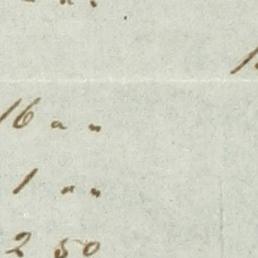 16 " "
1 " "
2 50